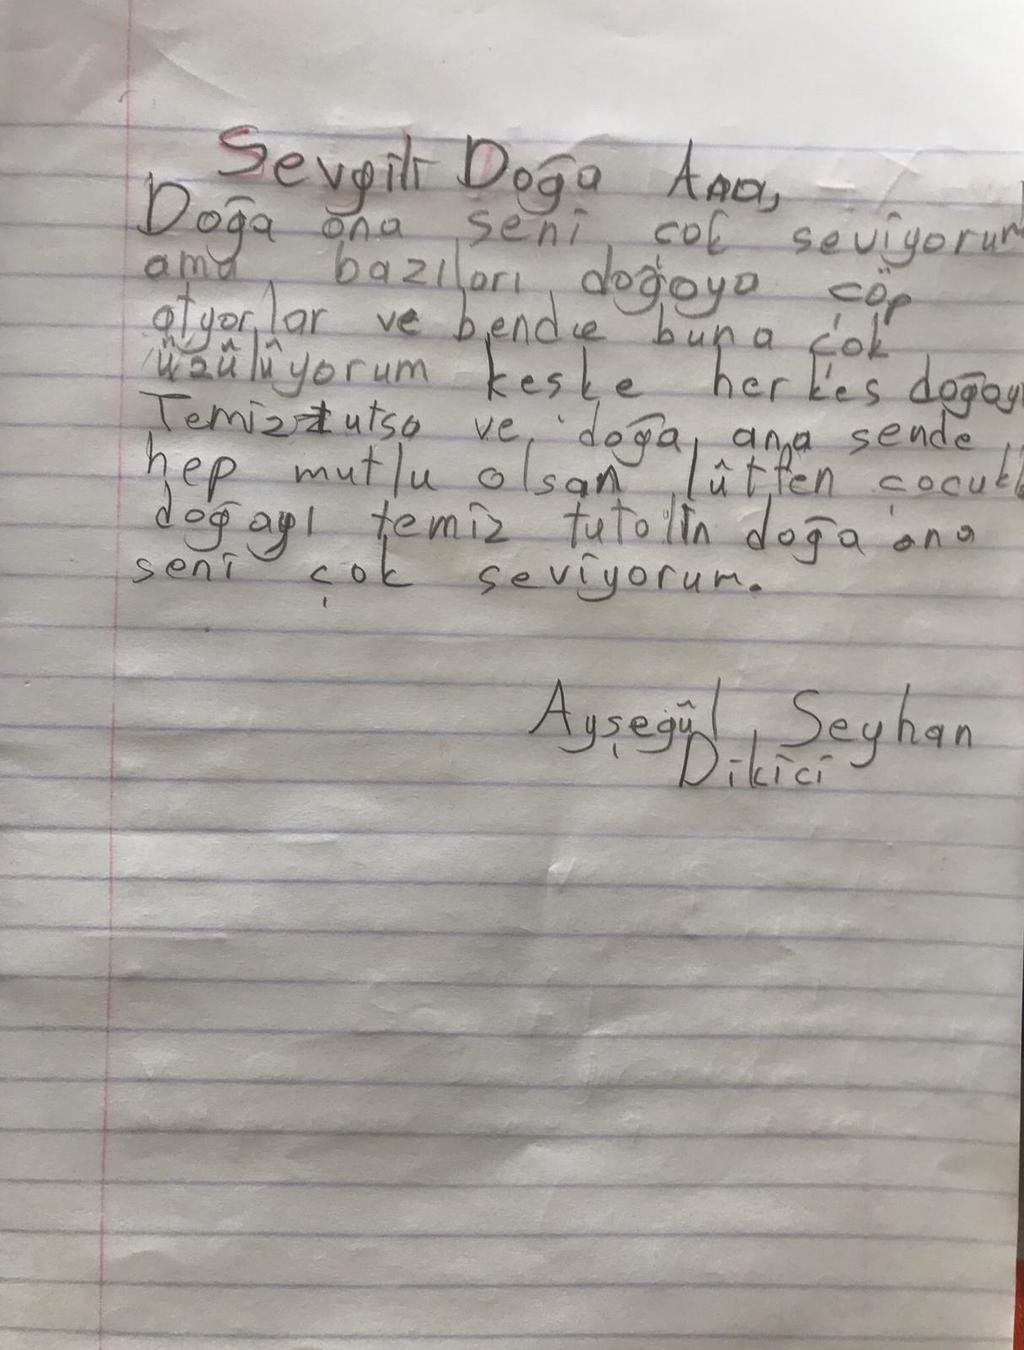 Sevgili Doğa Ana,
Doğa ana seni çok seviyorum
ama bazıları doğaya çöp
atyorlar ve bende buna çok
üzülüyorum keske herkes doğayı
Temiz tutsa ve doğa ana sende
hep mutlu olsan lütfen çocukl
doğayı temiz tutalin doğa ana
seni çok seviyorum.
Ayşegül Seyhan
Dikici